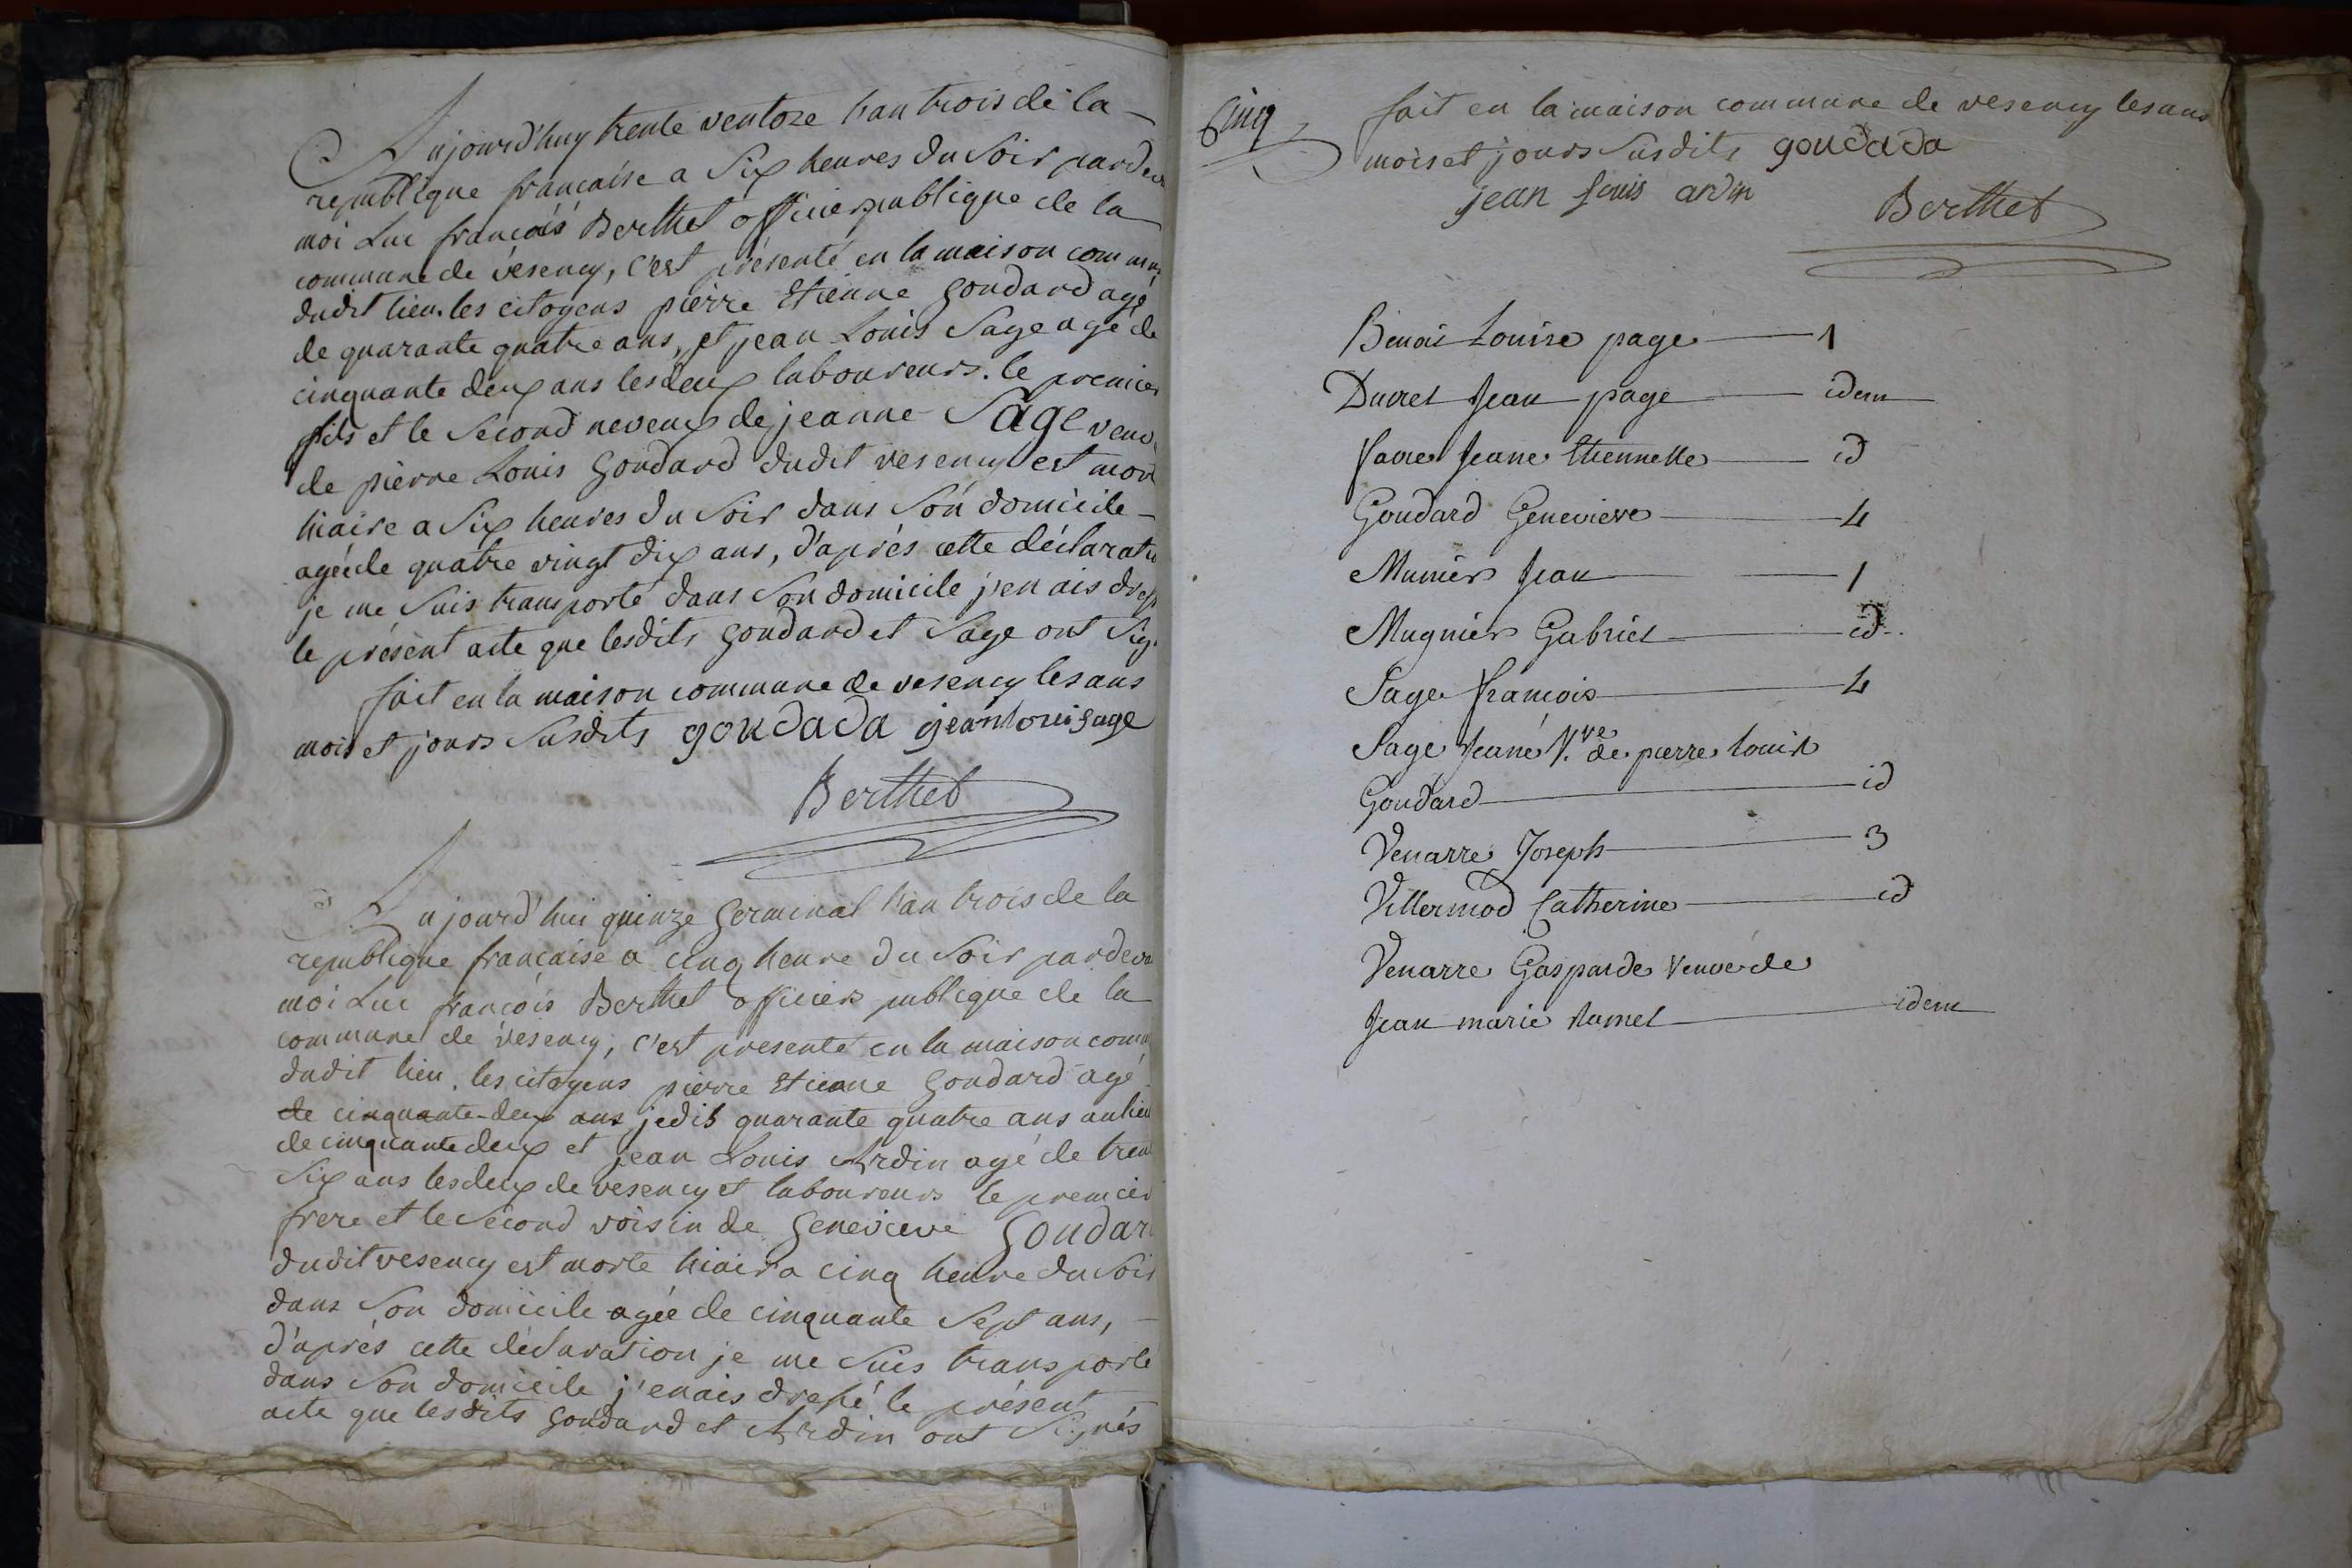 Aujourd'huy trente ventoze l'an trois de la
republique française a Six heures du Soir pardev
moi Luc françois Berthet officier publique de la
commune de vesency, c'est présenté en la maison commun
dudit lieu. les citoyens pierre Etienne Goudard agé
de quarante quatre ans, et jean Louis Sage agé de
cinquante deux ans les deux laboureurs. le premier
fils et le Second neveux de jeanne Sage veuv
de pierre Louis Goudard dudit vesency est mort
hiaire a Six heures du Soir dans Son domicile
agée de quatre vingt dix ans, d'aprés cette déclarati
je me Suis transporté dans Son domicile j'en ais dress
le présent acte que lesdits Goudard et Sage ont Sig
fait en la maison commune de vesency les ans
mois et jours Susdits goudada jean louis sage
Berthet
Aujourd'hui quinze Germinal l'an trois de la
republique française a cinq heure du Soir pardeva
moi Luc françois Berthet officier publique de la
commune de vesency, c'est presenté en la maison comm
dudit lieu. les citoyens pierre Etienne Goudard agé
de cinquante-deux ans je dis quarante quatre ans au lieu
de cinquante deux et jean Louis Ardin agé de tren
Six ans les deux de vesency et laboureurs le premier
frere et le Second voisin de Genevieve Goudar
dudit vesency est morte hiair a cinq heure du Soir
dans Son domicile agée de cinquante Sept ans,
d'aprés cette déclaration je me Suis transporté
dans Son domicile j'en ais dressé le présent
acte que lesdits Goudard et Ardin ont Signés
Cinq
fait en la maison commune de vesency les ans
mois et jours Susdits goudada
jean louis ardin
Berthet
Benoit Louise page 1
Ducret Jean page idem
Favre Jeane Etiennette id
Goudard Genevieve 4
Munier Jean 1
Mugnier Gabriel id
Sage francois 4
Sage Jeane V.ve de pierre louis
Goudard id
Venarre Joseph 3
Villermod Catherine id
Venarre Gasparde veuve de
Jean marie Ramel idem